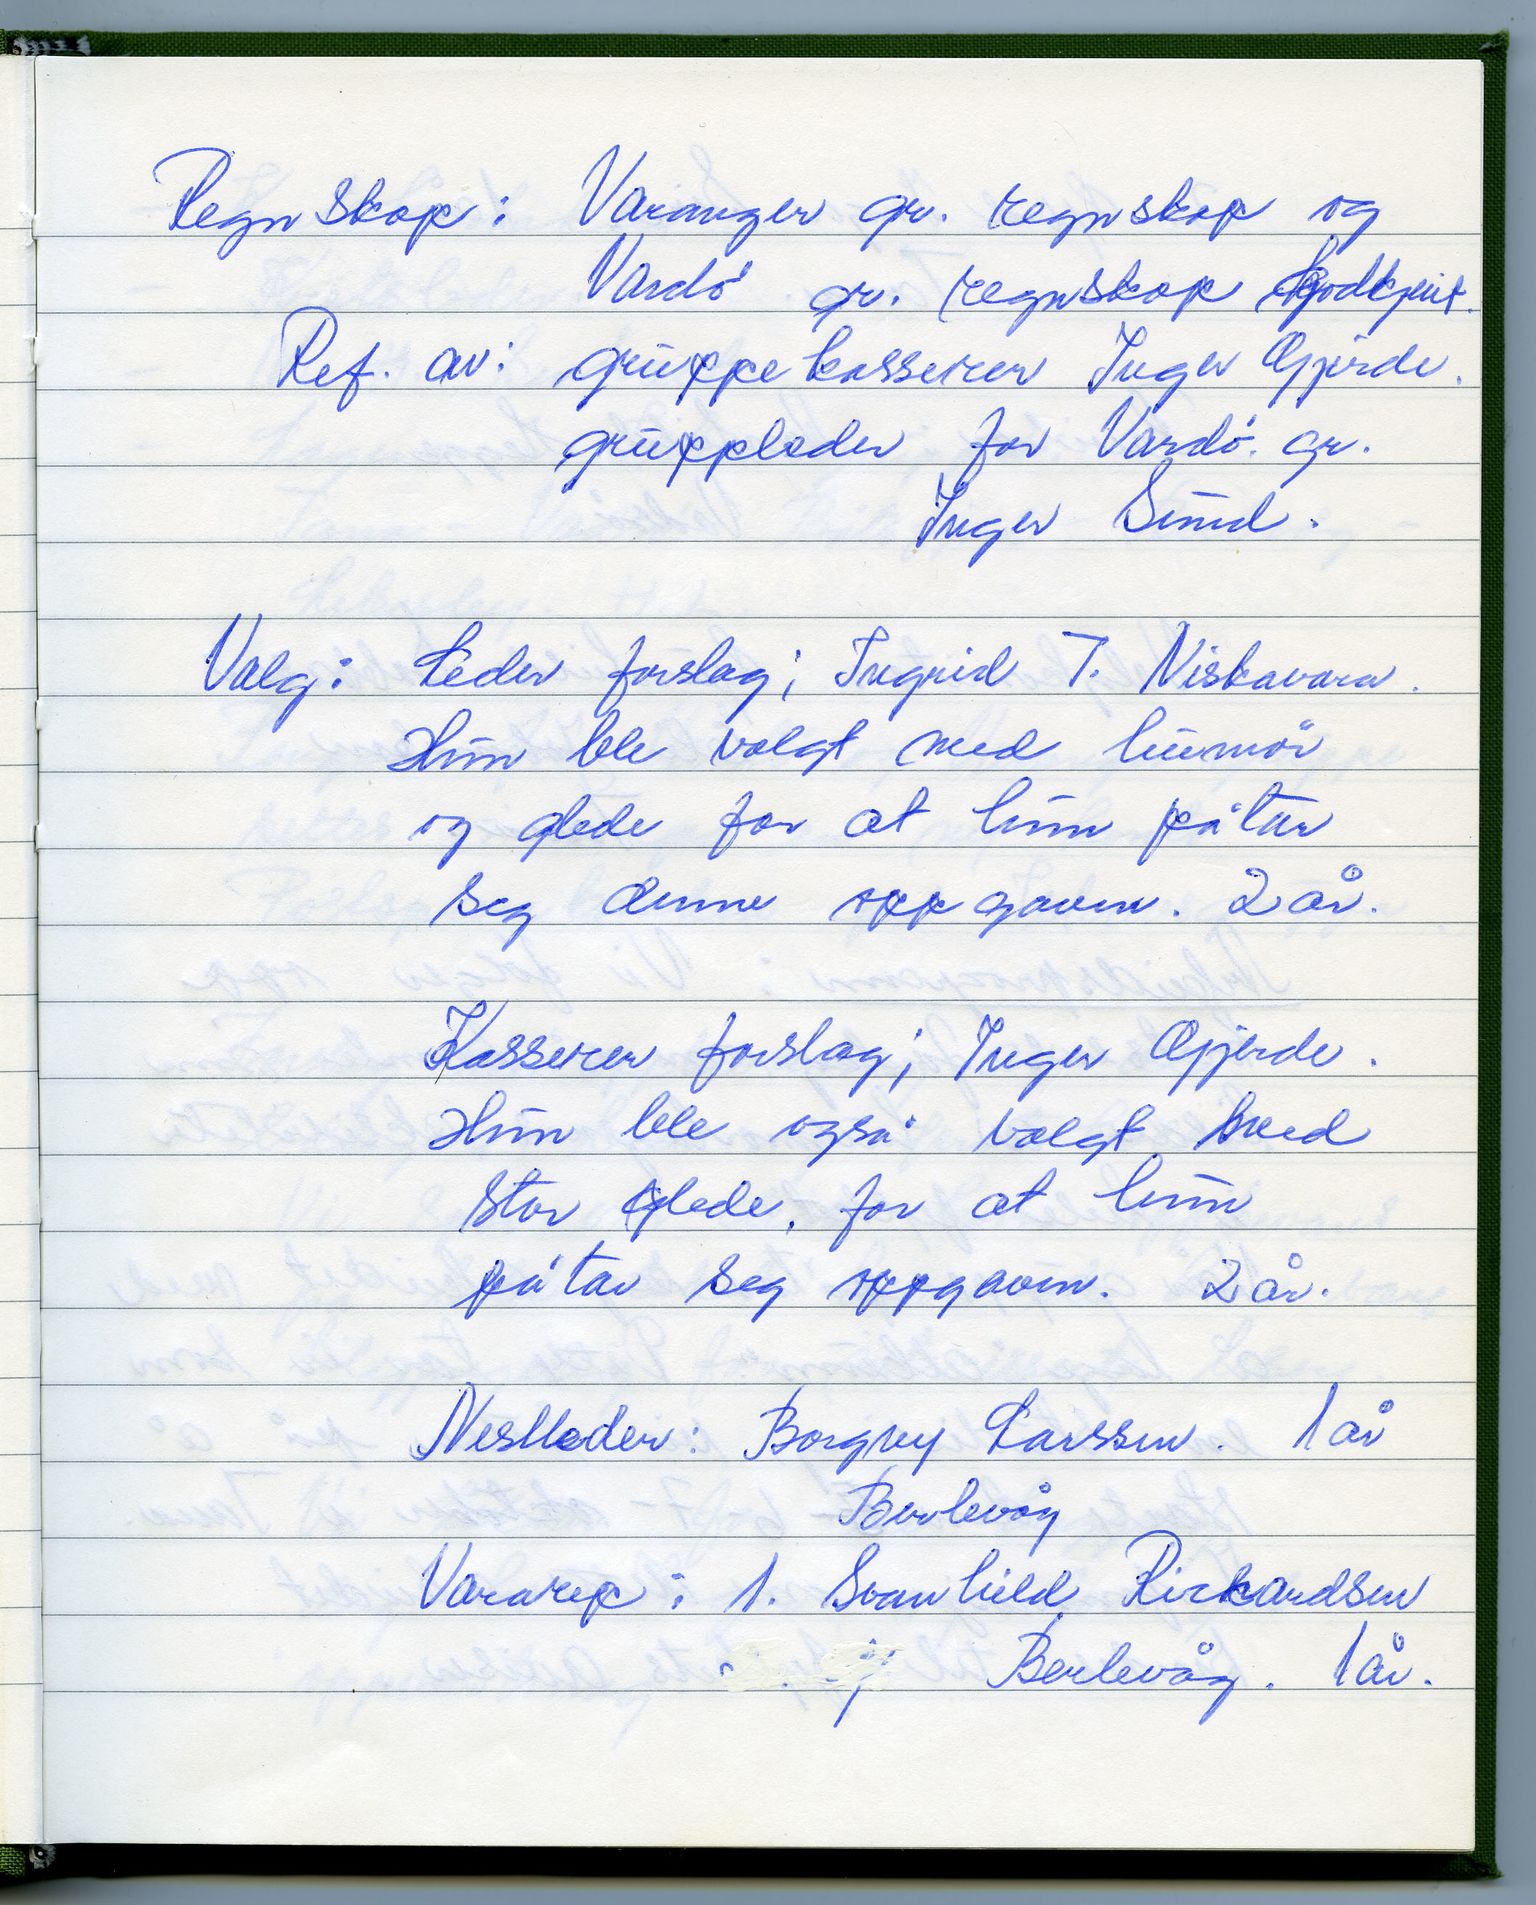 Regnskap: Varanger gr. regnskap og
Vardø gr. regnskap godkjent.
Ref. av: gruppekasserer Inger Gjerde.
gruppleder for Vardø gr.
Inger Sund.
Valg: Leder forslag; Ingrid T. Niskavara.
Hun ble valgt med humør
og glede for at hun påtar
seg denne oppgaven. 2 år.
Kasserer forslag; Inger Gjerde.
Hun ble også valgt med
stor glede, for at hun
påtar seg oppgaven. 2 år.
Nestleder: Borgny Larssen. 1 år
Berlevåg
Vararep: 1. Svanhild Rickardsen
Berlevåg. 1 år.